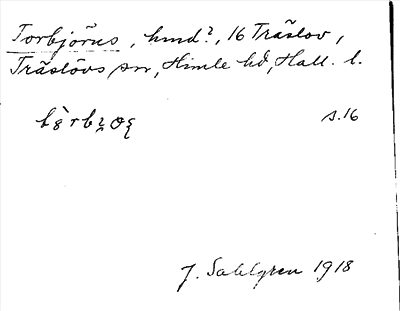 Torbjörns, hmd?, 16 Träslov,
Träslövs sn, Himle hd, Hall. l.
s.16
J. Sahlgren 1918